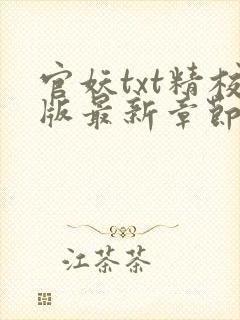 官妖txt精校
版最新章節
江茶茶